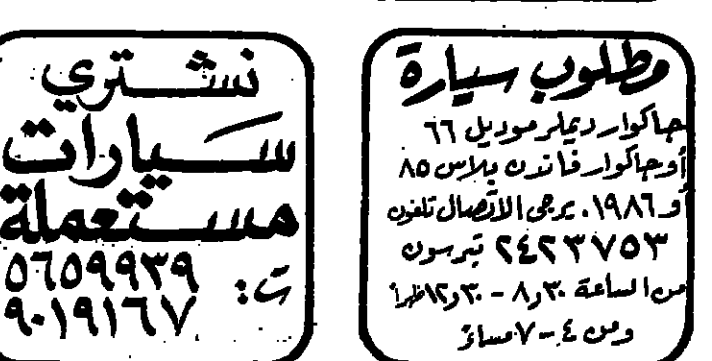 مطلوب سيارة
جاكوار ديملر موديل ٦٦
أو جاكوار فاندن بلاس ٨٥
أو ١٩٨٦. يرجى الاتصال تلفون
٢٤٢٣٧٥٣ تيرسون
من الساعة ٨٫٣٠ - ١٢٫٣٠ ظهراً
ومن ٤ - ٧ مساءً
نشتري
سيارات
مستعملة
ت: ٥٦٥٩٩٣٩
٩٠١٩١٦٧